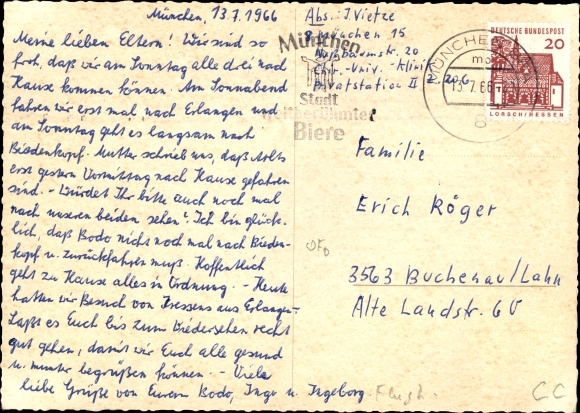 München, 13.7.1966
Meine lieben Eltern! Wir sind so
froh, daß wir am Sonntag alle drei nach
Hause kommen können. Am Sonnabend
fahren wir erst mal nach Erlangen und
am Sonntag geht es langsam nach
Biedenkopf. Mutter schrieb uns, daß Nolls
erst gestern Vormittag nach Hause gefahren
sind. - Würdet Ihr bitte auch noch mal
nach unseren beiden sehen? Ich bin glück-
lich, daß Bodo nicht noch mal nach Bieden-
kopf u. zurückfahren muß. Hoffentlich
geht zu Hause alles in Ordnung. - Heute
hatten wir Besuch von Dressens aus Erlangen.
Laßt es Euch bis zum Wiedersehen recht
gut gehen, damit wir Euch alle gesund
u. munter begrüßen können. - Viele
liebe Grüße von Eurem Bodo, Inge u. Ingeborg.
Abs.: J. Vietze
8 München 15
Nußbaumstr. 20
Chir.-Univ.-Klinik
Privatstation II Z. 206
München
Stadt
weltberühmter
Biere
MÜNCHEN
13.7.66
DEUTSCHE BUNDESPOST
20
LORSCH/HESSEN
Familie
Erich Röger
3563 Buchenau/Lahn
Alte Landstr. 60
CC